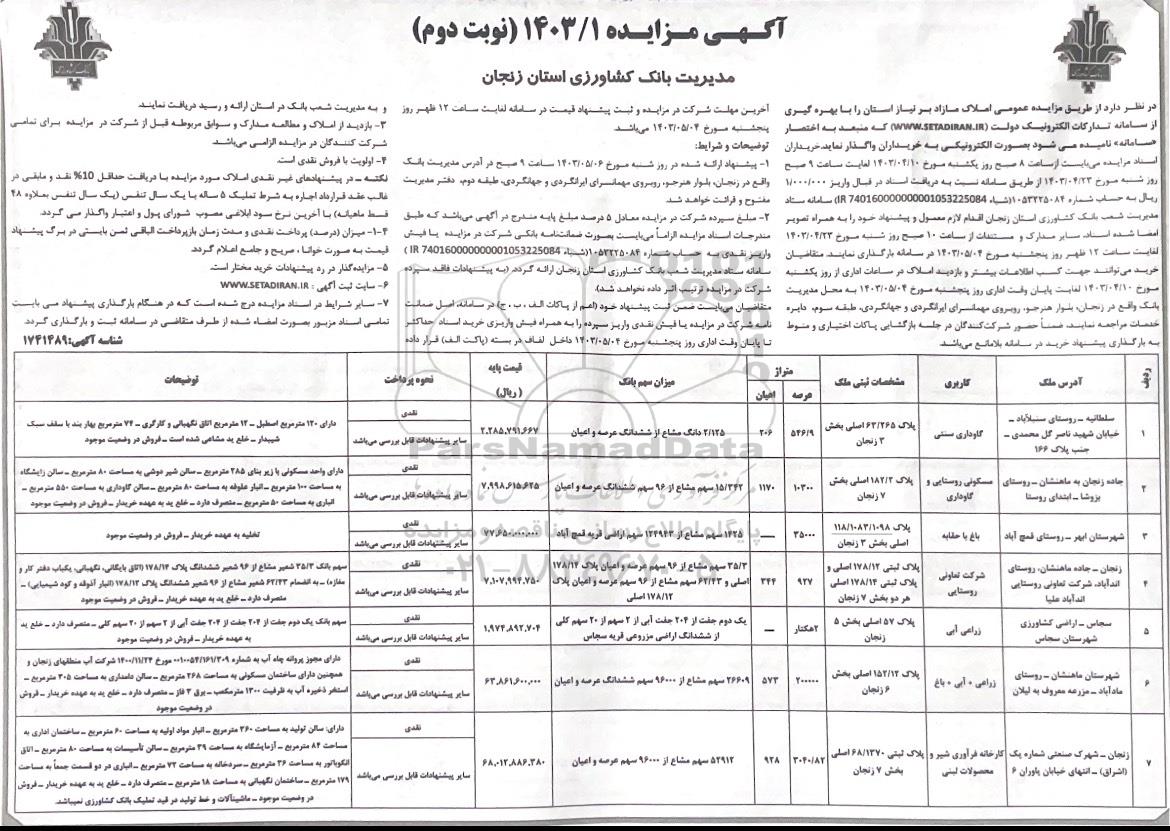 آگهی مزایده ۱۴۰۳/۱ (نوبت دوم)
مدیریت بانک کشاورزی استان زنجان
در نظر دارد از طریق مزایده عمومی املاک مازاد بر نیاز استان را با بهره گیری
از سامانه تدارکات الکترونیک دولت (WWW.SETADIRAN.IR) که منبعد به اختصار
«سامانه» نامیده می شود بصورت الکترونیکی به خریداران واگذار نماید.خریداران
اسناد مزایده می‌بایست ازساعت ۸ صبح روز یکشنبه مورخ ۱۴۰۳/۰۴/۱۰ لغایت ساعت ۹ صبح
روز شنبه مورخ ۱۴۰۳/۰۴/۲۳ از طریق سامانه نسبت به دریافت اسناد در قبال واریز ۱/۰۰۰/۰۰۰
ریال به حساب شماره ۱۰۵۳۲۲۵۰۸۴(شباء IR 740160000000001053225084) سامانه ستاد
مدیریت شعب بانک کشاورزی استان زنجان اقدام لازم معمول و پیشنهاد خود را به همراه تصویر
امضا شده اسناد، سایر مدارک و مستندات از ساعت ۱۰ صبح روز شنبه مورخ ۱۴۰۳/۰۴/۲۳
لغایت ساعت ۱۲ ظهر روز پنجشنبه مورخ ۱۴۰۳/۰۵/۰۴ در سامانه بارگذاری نمایند. متقاضیان
می‌توانند جهت کسب اطلاعات بیشتر و بازدید املاک در ساعات اداری از روز یکشنبه
مورخ ۱۴۰۳/۰۴/۱۰ لغایت پایان وقت اداری روز پنجشنبه مورخ ۱۴۰۳/۰۵/۰۴ به محل مدیریت
بانک واقع در زنجان، بلوار هنرجو، روبروی مهمانسرای ایرانگردی و جهانگردی، طبقه سوم، دایره
خدمات مراجعه نمایند، ضمناً حضور شرکت‌کنندگان در جلسه بازگشایی پاکات اختیاری و منوط
به بارگذاری پیشنهاد خرید در سامانه بلامانع می‌باشد.
آخرین مهلت شرکت در مزایده و ثبت پیشنهاد قیمت در سامانه لغایت ساعت ۱۲ ظهر روز
پنجشنبه مورخ ۱۴۰۳/۰۵/۰۴ می‌باشد.
توضیحات و شرایط:
۱- پیشنهاد ارائه شده در روز شنبه مورخ ۱۴۰۳/۰۵/۰۶ ساعت ۹ صبح در آدرس مدیریت بانک
واقع در زنجان، بلوار هنرجو، روبروی مهمانسرای ایرانگردی و جهانگردی، طبقه دوم، دفتر مدیریت
مفتوح و قرائت خواهد شد.
۲- مبلغ سپرده شرکت در مزایده معادل ۵ درصد مبلغ پایه مندرج در آگهی می‌باشد که طبق
مندرجات اسناد مزایده الزاماً می‌بایست بصورت ضمانت‌نامه بانکی شرکت در مزایده یا فیش
واریز نقدی به حساب شماره ۱۰۵۳۲۲۵۰۸۴(شباء IR 740160000000001053225084)
سامانه ستاد مدیریت شعب بانک کشاورزی استان زنجان ارائه گردد. (به پیشنهادات فاقد سپرده
شرکت در مزایده ترتیب اثر داده نخواهد شد).
متقاضیان می‌بایست ضمن ثبت پیشنهاد خود (اعم از پاکات الف ، ب ، ج) در سامانه، اصل ضمانت
نامه شرکت در مزایده یا فیش نقدی واریز سپرده را به همراه فیش واریزی خرید اسناد حداکثر
تا پایان وقت اداری روز پنجشنبه مورخ ۱۴۰۳/۰۵/۰۴ داخل لفاف در بسته (پاکت الف) قرار داده
و به مدیریت شعب بانک در استان ارائه و رسید دریافت نمایند.
۳- بازدید از املاک و مطالعه مدارک و سوابق مربوطه قبل از شرکت در مزایده برای تمامی
شرکت کنندگان در مزایده الزامی می‌باشد.
۴- اولویت با فروش نقدی است.
نکته - در پیشنهادهای غیر نقدی املاک مورد مزایده با دریافت حداقل 10% نقد و مابقی در
غالب عقد قرارداد اجاره به شرط تملیک ۵ ساله با یک سال تنفس (یک سال تنفس بعلاوه ۴۸
قسط ماهیانه) با آخرین نرخ سود ابلاغی مصوب شورای پول و اعتبار واگذار می گردد.
۴-۱- میزان (درصد) پرداخت نقدی و مدت زمان بازپرداخت الباقی ثمن بایستی در برگ پیشنهاد
قیمت به صورت خوانا ، صریح و جامع اعلام گردد.
۵- مزایده‌گذار در رد پیشنهادات خرید مختار است.
۶- سایت ثبت آگهی : WWW.SETADIRAN.IR
۷- سایر شرایط در اسناد مزایده درج شده است که در هنگام بارگذاری پیشنهاد می بایست
تمامی اسناد مزبور بصورت امضاء شده از طرف متقاضی در سامانه ثبت و بارگذاری گردد.
شناسه آگهی:۱۷۴۱۴۸۹
ردیف | آدرس ملک | کاربری | مشخصات ثبتی ملک | متراژ عرصه | اعیان | میزان سهم بانک | قیمت پایه (ریال) | نحوه پرداخت | توضیحات
۱ | سلطانیه - روستای سنبلاباد - خیابان شهید ناصر گل محمدی - جنب پلاک ۱۶۶ | گاوداری سنتی | پلاک ۶۳/۲۶۵ اصلی بخش ۳ زنجان | ۵۴۶/۹ | ۲۰۶ | ۲/۱۲۵ دانگ مشاع از ششدانگ عرصه و اعیان | ۲,۲۸۵,۷۹۱,۶۶۷ | نقدی سایر پیشنهادات قابل بررسی می‌باشد | دارای ۱۲۰ مترمربع اصطبل - ۱۲ مترمربع اتاق نگهبانی و کارگری - ۷۴ مترمربع بهاربند با سقف سبک شیبدار - خلع ید مشاعی شده است - فروش در وضعیت موجود
۲ | جاده زنجان به ماهنشان - روستای بزوشا - ابتدای روستا | مسکونی روستایی و گاوداری | پلاک ۱۸۲/۲ اصلی بخش ۷ زنجان | ۱۰۳۰۰ | ۱۱۷۰ | ۱۵/۳۴۲ سهم مشاع از ۹۶ سهم ششدانگ عرصه و اعیان | ۷,۹۹۸,۶۱۵,۶۲۵ | نقدی سایر پیشنهادات قابل بررسی می‌باشد | دارای واحد مسکونی با زیر بنای ۲۸۵ مترمربع - سالن شیر دوشی به مساحت ۸۰ مترمربع - سالن زایشگاه به مساحت ۱۰۰ مترمربع - انبار علوفه به مساحت ۸۰ مترمربع - سالن گاوداری به مساحت ۵۵۰ مترمربع - انباری به مساحت ۵۰ مترمربع - متصرف دارد - خلع ید به عهده خریدار - فروش در وضعیت موجود
۳ | شهرستان ابهر - روستای قمچ آباد | باغ با حقابه | پلاک ۱۱۸/۱۰۸۳/۱۰۹۸ اصلی بخش ۳ زنجان | ۳۵۰۰۰ | — | ۱۴۲۵ سهم مشاع از ۱۲۴۹۴۳ سهم اراضی قریه قمچ آباد | ۷۷,۶۵۰,۰۰۰,۰۰۰ | نقدی سایر پیشنهادات قابل بررسی می‌باشد | تخلیه به عهده خریدار - فروش در وضعیت موجود
۴ | زنجان - جاده ماهنشان، روستای اندآباد، شرکت تعاونی روستایی اندآباد علیا | شرکت تعاونی روستایی | پلاک ثبتی ۱۷۸/۱۲ اصلی و پلاک ثبتی ۱۷۸/۱۴ اصلی هر دو بخش ۷ زنجان | ۹۲۷ | ۳۴۴ | ۳۵/۳ سهم مشاع از ۹۶ سهم عرصه و اعیان پلاک ۱۷۸/۱۴ اصلی و ۶۲/۴۳ سهم مشاع از ۹۶ سهم عرصه و اعیان پلاک ۱۷۸/۱۲ اصلی | ۷,۱۰۷,۹۹۴,۷۵۰ | نقدی سایر پیشنهادات قابل بررسی می‌باشد | سهم بانک ۳۵/۳ شعیر مشاع از ۹۶ شعیر ششدانگ پلاک ۱۷۸/۱۴ (اتاق بایگانی، نگهبانی، یکباب دفتر کار و مغازه) - به انضمام ۶۲/۴۳ شعیر مشاع از ۹۶ شعیر ششدانگ پلاک ۱۷۸/۱۲ (انبار آذوقه و کود شیمیایی) - متصرف دارد - خلع ید به عهده خریدار - فروش در وضعیت موجود
۵ | سجاس - اراضی کشاورزی شهرستان سجاس | زراعی آبی | پلاک ۵۷ اصلی بخش ۵ زنجان | ۲هکتار | — | یک دوم جفت از ۲۰۴ جفت آبی از ۲ سهم از ۲۰ سهم کلی از ششدانگ اراضی مزروعی قریه سجاس | ۱,۹۷۴,۸۹۲,۷۰۴ | نقدی سایر پیشنهادات قابل بررسی می‌باشد | سهم بانک یک دوم جفت از ۲۰۴ جفت از ۲۰۴ جفت آبی از ۲ سهم از ۲۰ سهم کلی - متصرف دارد - خلع ید به عهده خریدار - فروش در وضعیت موجود
۶ | شهرستان ماهنشان - روستای مادآباد - مزرعه معروف به لیلان | زراعی + آبی + باغ | پلاک ۱۵۲/۱۲ اصلی بخش ۶ زنجان | ۲۰۰۰۰۰ | ۵۷۳ | ۲۶۶۰۹ سهم مشاع از ۹۶۰۰۰ سهم ششدانگ عرصه و اعیان | ۶۳,۸۶۱,۶۰۰,۰۰۰ | نقدی سایر پیشنهادات قابل بررسی می‌باشد | دارای مجوز پروانه چاه آب به شماره ۰۰۱۰۰۵۴/۱۶۱/۳۰۹ مورخ ۱۴۰۰/۱۱/۲۴ شرکت آب منطقه‏ای زنجان و همچنین دارای ساختمان مسکونی به مساحت ۲۶۸ مترمربع - سالن دامداری به مساحت ۳۰۵ مترمربع - استخر ذخیره آب به ظرفیت ۱۳۰۰ مترمکعب - برق ۳ فاز - متصرف دارد - خلع ید به عهده خریدار - فروش در وضعیت موجود
۷ | زنجان - شهرک صنعتی شماره یک (اشراق) - انتهای خیابان یاوران ۶ | کارخانه فرآوری شیر و محصولات لبنی | پلاک ثبتی ۶۸/۱۳۷۰ اصلی بخش ۷ زنجان | ۳۰۴۰/۸۲ | ۹۲۸ | ۵۲۹۱۲ سهم مشاع از ۹۶۰۰۰ سهم عرصه و اعیان | ۶۸,۰۱۲,۸۸۶,۳۸۰ | نقدی سایر پیشنهادات قابل بررسی می‌باشد | دارای: سالن تولید به مساحت ۳۶۰ مترمربع - انبار مواد اولیه به مساحت ۶۰ مترمربع - ساختمان اداری به مساحت ۸۴ مترمربع - آزمایشگاه به مساحت ۳۹ مترمربع - سالن تأسیسات به مساحت ۸۰ مترمربع - اتاق انکوباتور به مساحت ۳۶ مترمربع - سردخانه به مساحت ۷۲ مترمربع - انباری در دو قسمت جمعاً به مساحت ۱۷۹ مترمربع - ساختمان نگهبانی به مساحت ۱۸ مترمربع - متصرف دارد - خلع ید به عهده خریدار - فروش در وضعیت موجود - ماشین‌آلات و خط تولید در قید تملیک بانک کشاورزی نمیباشد.
ParsNamadData
پایگاه اطلاع رسانی مناقصه و مزایده
۰۲۱-۸۸۳۴۹۶۷۰-۵